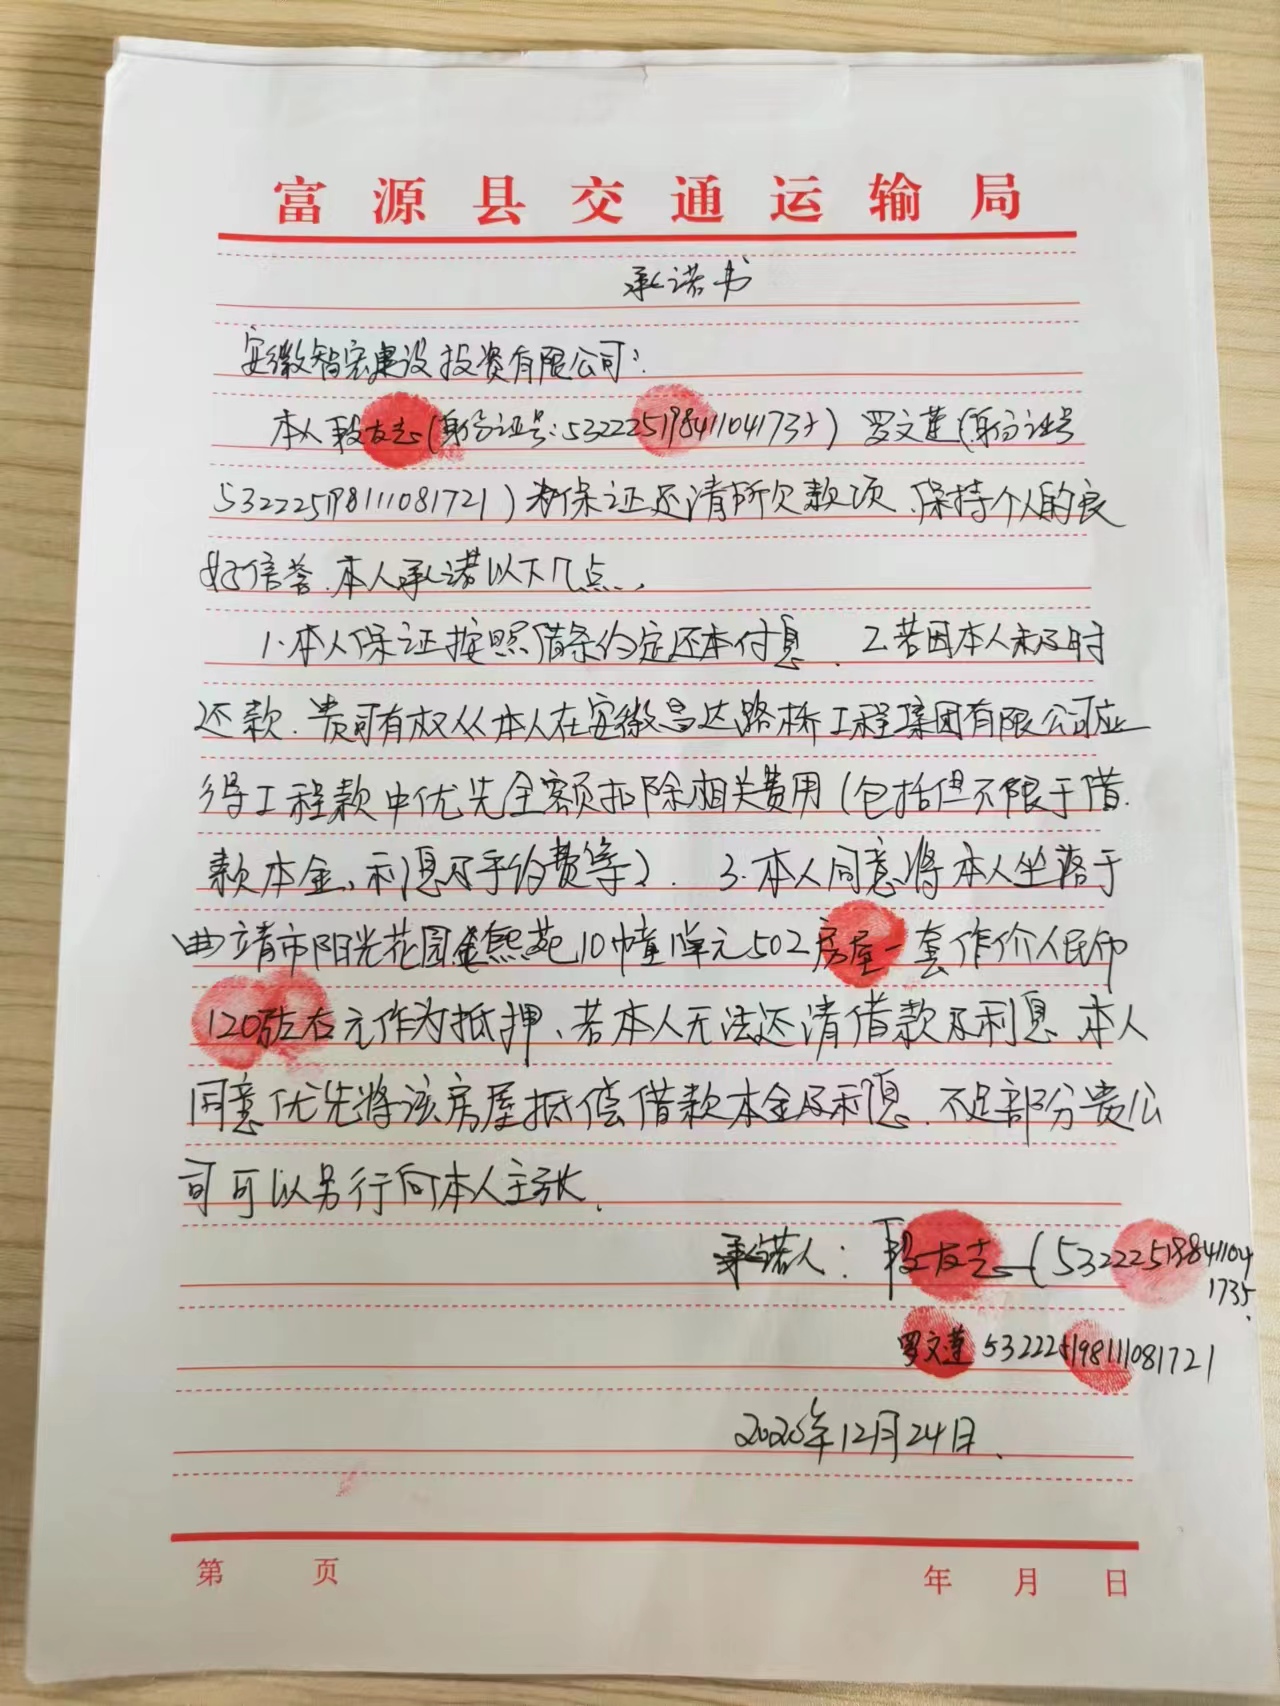 富源县交通运输局
承诺书
安徽智宏建设投资有限公司:
本人段友志(身份证号:53222519841104173+)罗文莲(身份证号
532225198111081721)为保证还清所欠款项、保持个人的良
好信誉、本人承诺以下几点、
1、本人保证按照借条约定还本付息、2、若因本人未及时
还款、贵司有权从本人在安徽昌达路桥工程集团有限公司应
得工程款中优先全额扣除相关费用(包括但不限于借
款本金、利息及手约费等)、3、本人同意将本人坐落于
曲靖市阳光花园金熙苑10幢1单元502房屋一套作价人民币
120万左右元作为抵押、若本人无法还清借款及利息、本人
同意优先将该房屋抵偿借款本金及利息、不足部分贵公
司可以另行向本人主张、
承诺人:段友志(53222519841104
1735.
罗文莲 532225198111081721
2020年12月24日、
第 页 年 月 日